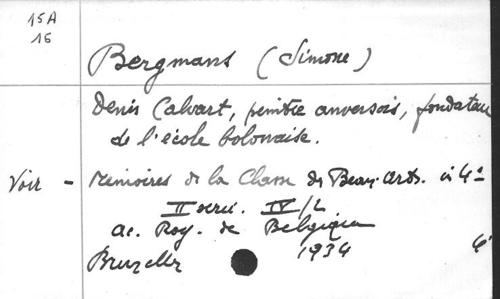 15A
16
Bergmans (Simone)
Denis Calvart, peintre anversois, fondateur
de l'école bolonaise.
Voir - Mémoires de la Classe des Beaux-Arts. in 4º
II série. IV/2
Ac. Roy. de Belgique
Bruxelles 1934